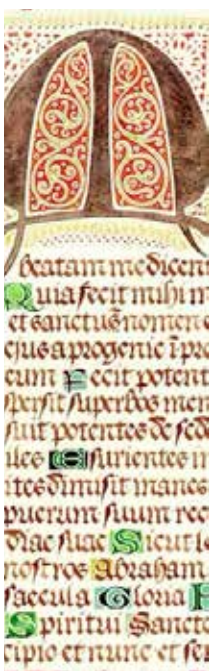 M
beatam me dicent
Quia fecit mihi m
et sanctū nomen e
ejus a progenie ī pro
eum Fecit potent
spersit superbos men
suit potentes de sed
ules Esurientes m
ites dimisit inanes
puerum suum rec
diae suae Sicut lo
nostros Abraham
saecula Gloria P
Spiritui Sancto
cipio et nunc et sem